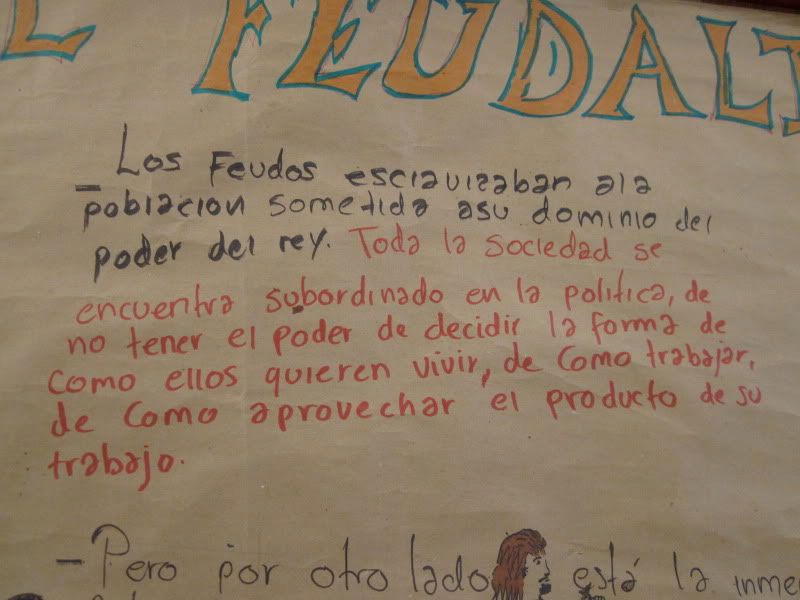 L FEUDALI
- Los Feudos esclavizaban ala
población sometida asu dominio del
poder del rey. Toda la sociedad se
encuentra subordinado en la politica, de
no tener el poder de decidir la forma de
como ellos quieren vivir, de como trabajar,
de como aprovechar el producto de su
trabajo.
- Pero por otro lado está la inme